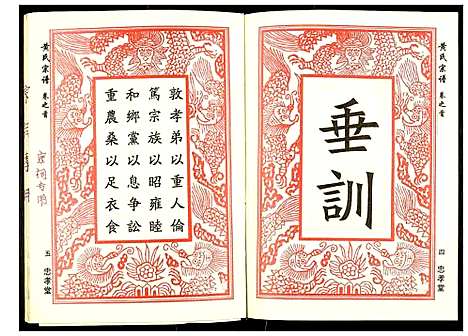 黄氏宗谱 卷之首
垂訓
四 忠孝堂
黄氏宗谱 卷之首
敦孝弟以重人倫
篤宗族以昭雍睦
和鄉黨以息争訟
重農桑以足衣食
五 忠孝堂